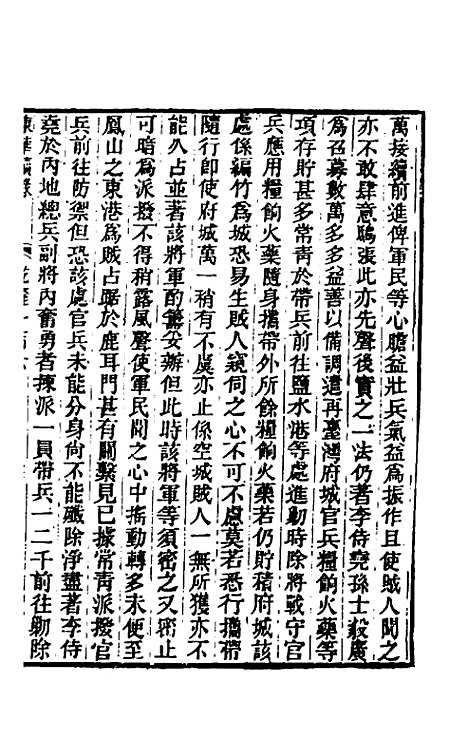 萬接續前進俾軍民等心膽益壯兵氣益爲振作且使賊人聞之
亦不敢肆意鴟張此亦先聲後實之一法仍著李侍堯孫士毅廣
爲召募數萬多多益善以備調遣再臺灣府城官兵糧餉火藥等
項存貯甚多常靑於帶兵前往鹽水港等處進勦時除將戰守官
兵應用糧餉火藥隨身攜帶外所餘糧餉火藥若仍貯積府城該
處係編竹爲城恐易生賊人窺伺之心不可不慮莫若悉行攜帶
隨行卽使府城萬一稍有不虞亦止係空城賊人一無所獲亦不
能久占並著該將軍酌籌妥辦但此時該將軍等須密之又密止
可暗爲派撥不得稍露風聲使軍民聞之心中搖動轉多未便至
鳳山之東港爲賊占踞於鹿耳門甚有關繫見已據常靑派撥官
兵前往防禦但恐該處官兵未能分身尙不能殲除淨盡著李侍
堯於內地總兵副將內奮勇者揀派一員帶兵一二千前往勦除
東華續錄